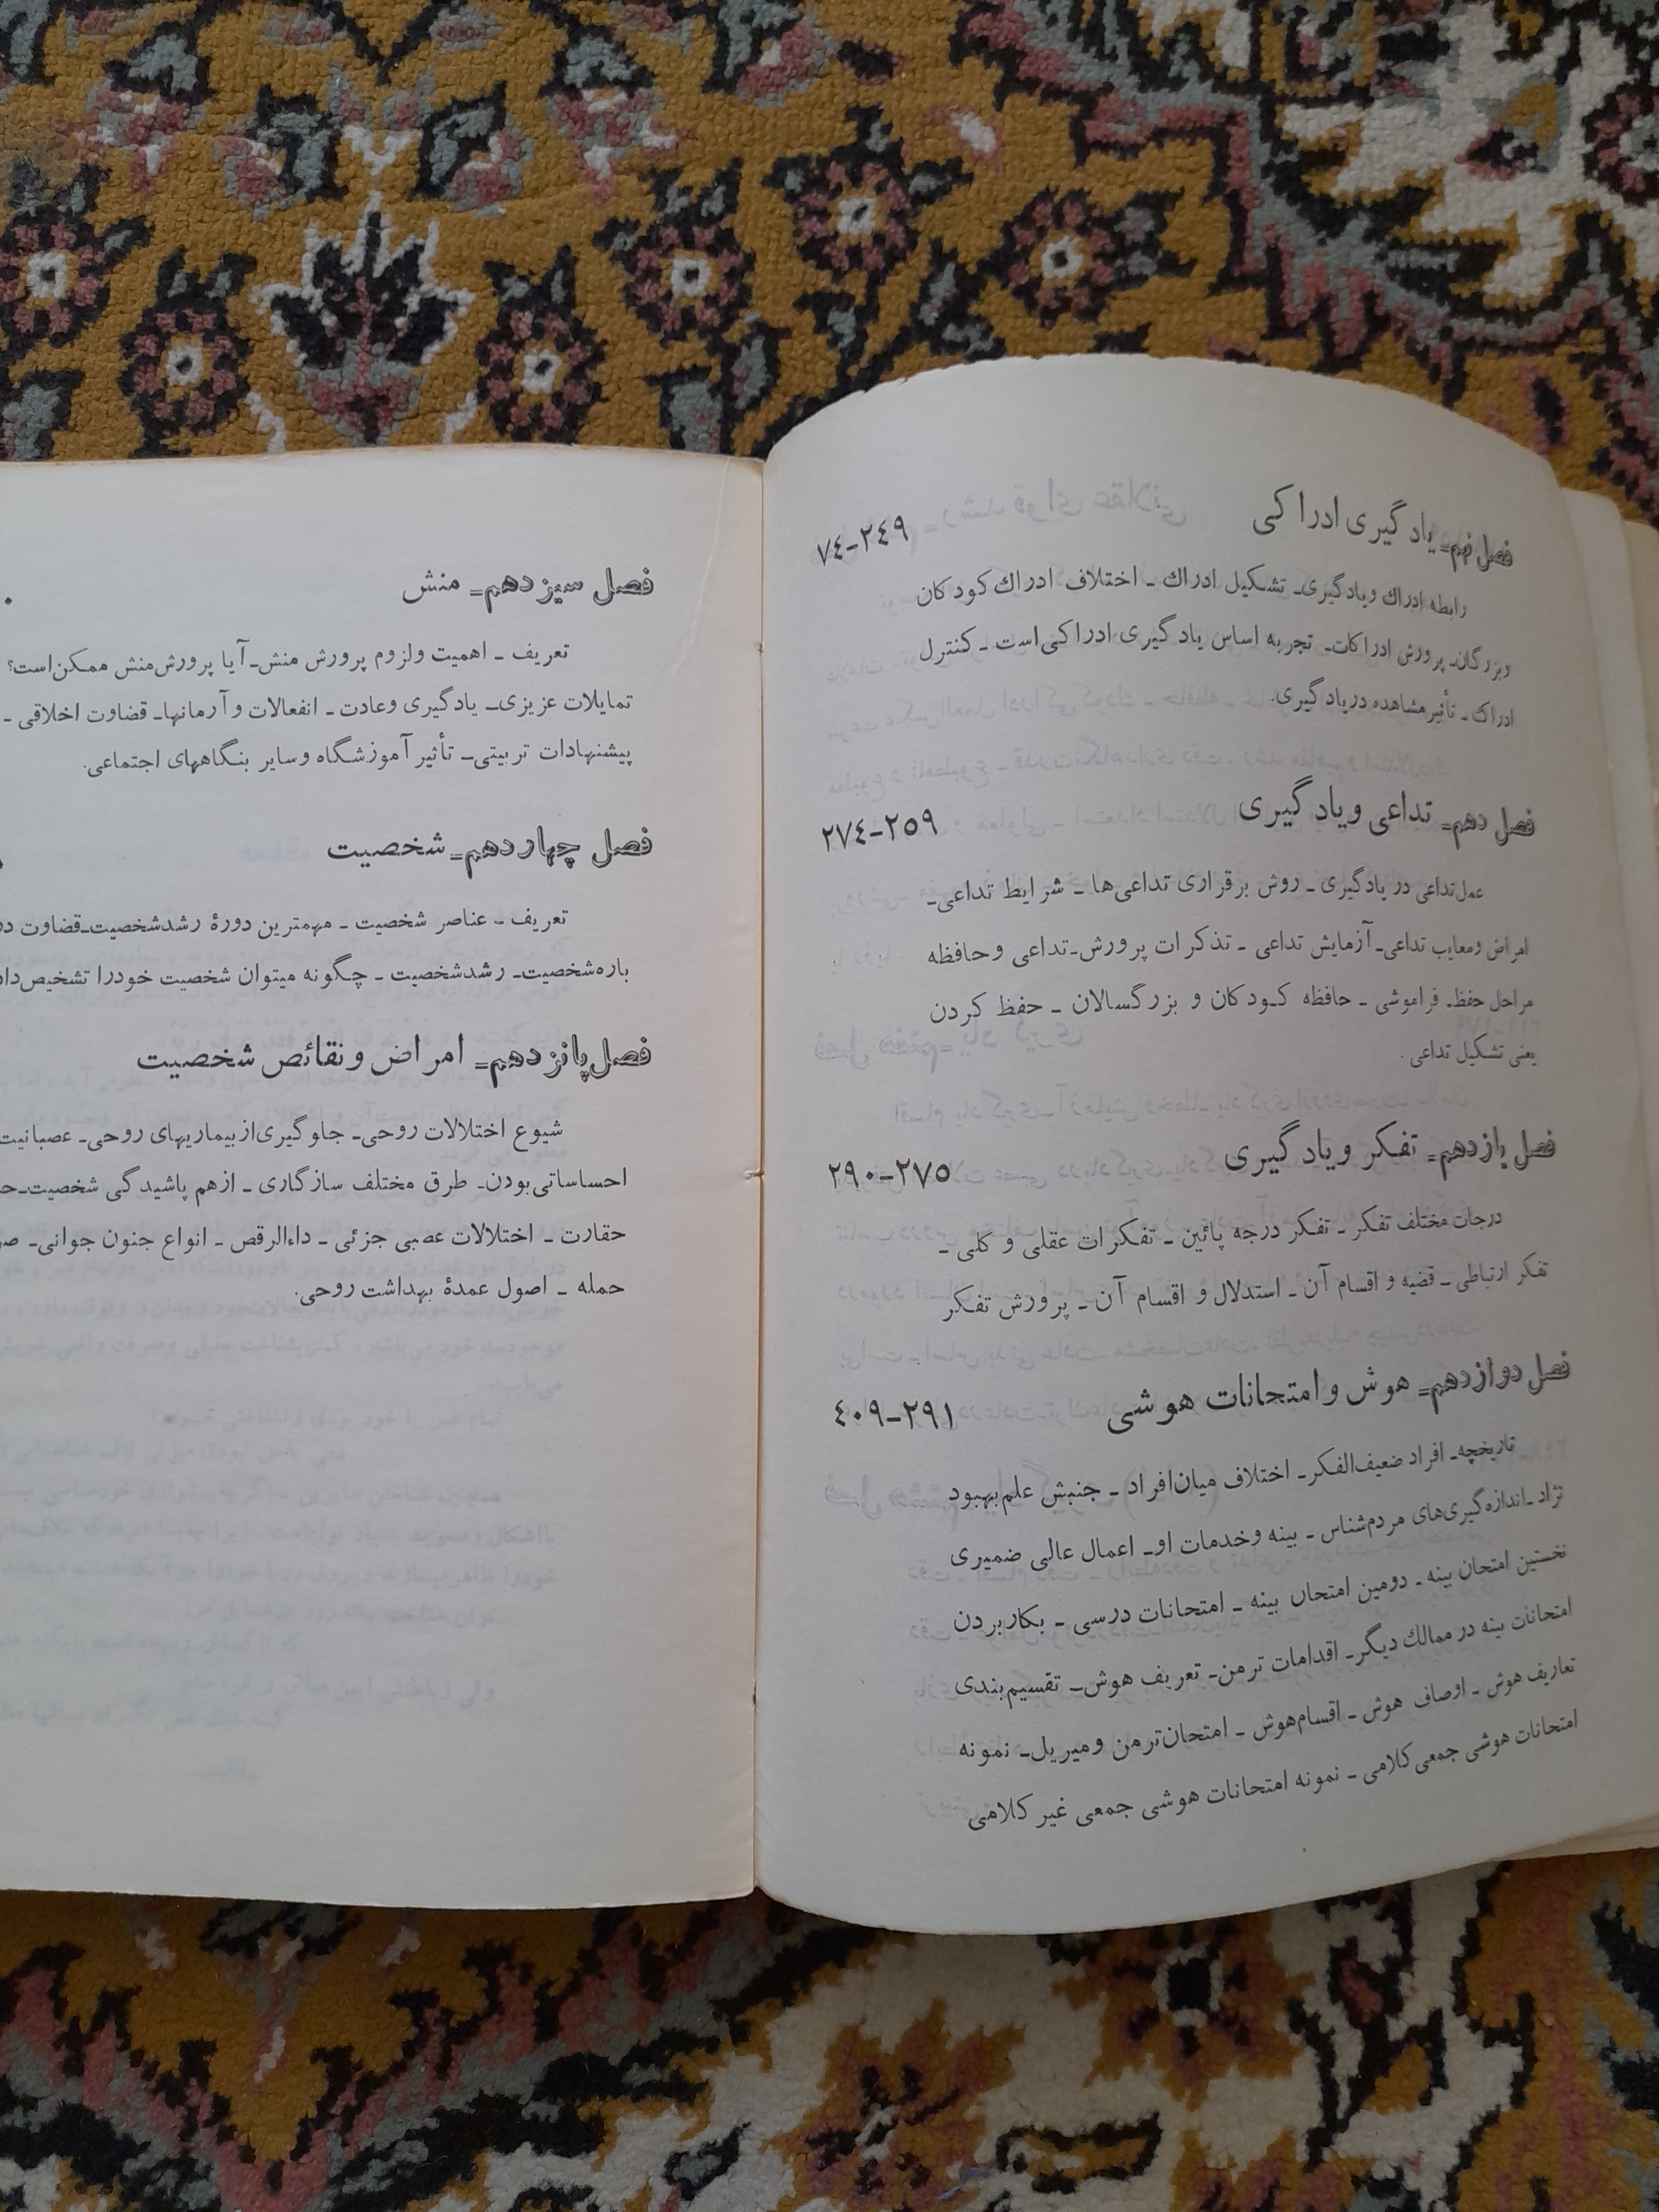 فصل نهم= یاد گیری ادراکی ۲٤۹-۷٤
رابطه ادراك ویادگیری_ تشکیل ادراك _ اختلاف ادراك کودکان
وبزرگان_ پرورش ادراکات_ تجربه اساس یادگیری ادراکی‌است _ کنترل
ادراك _ تأثیر مشاهده دریاد گیری.
فصل دهم= تداعی ویاد گیری ۲۵۹-۲۷٤
عمل‌تداعی در یادگیری _ روش برقراری تداعی‌ها _ شرایط تداعی_
امراض ومعایب تداعی_ آزمایش تداعی _ تذکرات پرورش_تداعی وحافظه
مراحل حفظ_ فراموشی _ حافظه کودکان و بزرگسالان _ حفظ کردن
یعنی تشکیل تداعی .
فصل یازدهم= تفکر ویاد گیری ۲۷۵-۲۹۰
درجات مختلف تفکر _ تفکر درجه پائین _ تفکرات عقلی و کلی _
تفکر ارتباطی _ قضیه و اقسام آن _ استدلال و اقسام آن _ پرورش تفکر
فصل دوازدهم= هوش و امتحانات هوشی ۲۹۱-٤۰۹
تاریخچه_ افراد ضعیف‌الفکر_ اختلاف میان‌افراد _ جنبش علم‌بهبود
نژاد _اندازه‌گیری‌های مردم‌شناس _ بینه وخدمات او_ اعمال عالی ضمیری
نخستین امتحان بینه _ دومین امتحان بینه _ امتحانات درسی _ بکاربردن
امتحانات بینه در ممالك دیگر_ اقدامات ترمن_ تعریف هوش_ تقسیم‌بندی
تعاریف هوش _ اوصاف هوش _ اقسام‌هوش _ امتحان‌ترمن ومیریل_ نمونه
امتحانات هوشی جمعی‌کلامی _ نمونه امتحانات هوشی جمعی غیر کلامی
فصل سیزدهم= منش
تعریف _ اهمیت ولزوم پرورش منش_آیا پرورش‌منش ممکن‌است؟
تمایلات عزیزی_ یادگیری وعادت _ انفعالات و آرمانها_ قضاوت اخلاقی _
پیشنهادات تربیتی_ تأثیر آموزشگاه وسایر بنگاههای اجتماعی.
فصل چهاردهم= شخصیت
تعریف _ عناصر شخصیت _ مهمترین دورهٔ رشدشخصیت_قضاوت در
باره‌شخصیت_ رشدشخصیت _ چگونه میتوان شخصیت خودرا
فصل پانزدهم= امراض ونقائص شخصیت
شیوع اختلالات روحی_ جلوگیری‌ازبیماریهای روحی_ عصبانیت
احساساتی‌بودن_ طرق مختلف سازگاری _ ازهم پاشیدگی شخصیت_
حقارت _ اختلالات عصبی جزئی _ داءالرقص _ انواع جنون جوانی_
حمله _ اصول عمدهٔ بهداشت روحی.